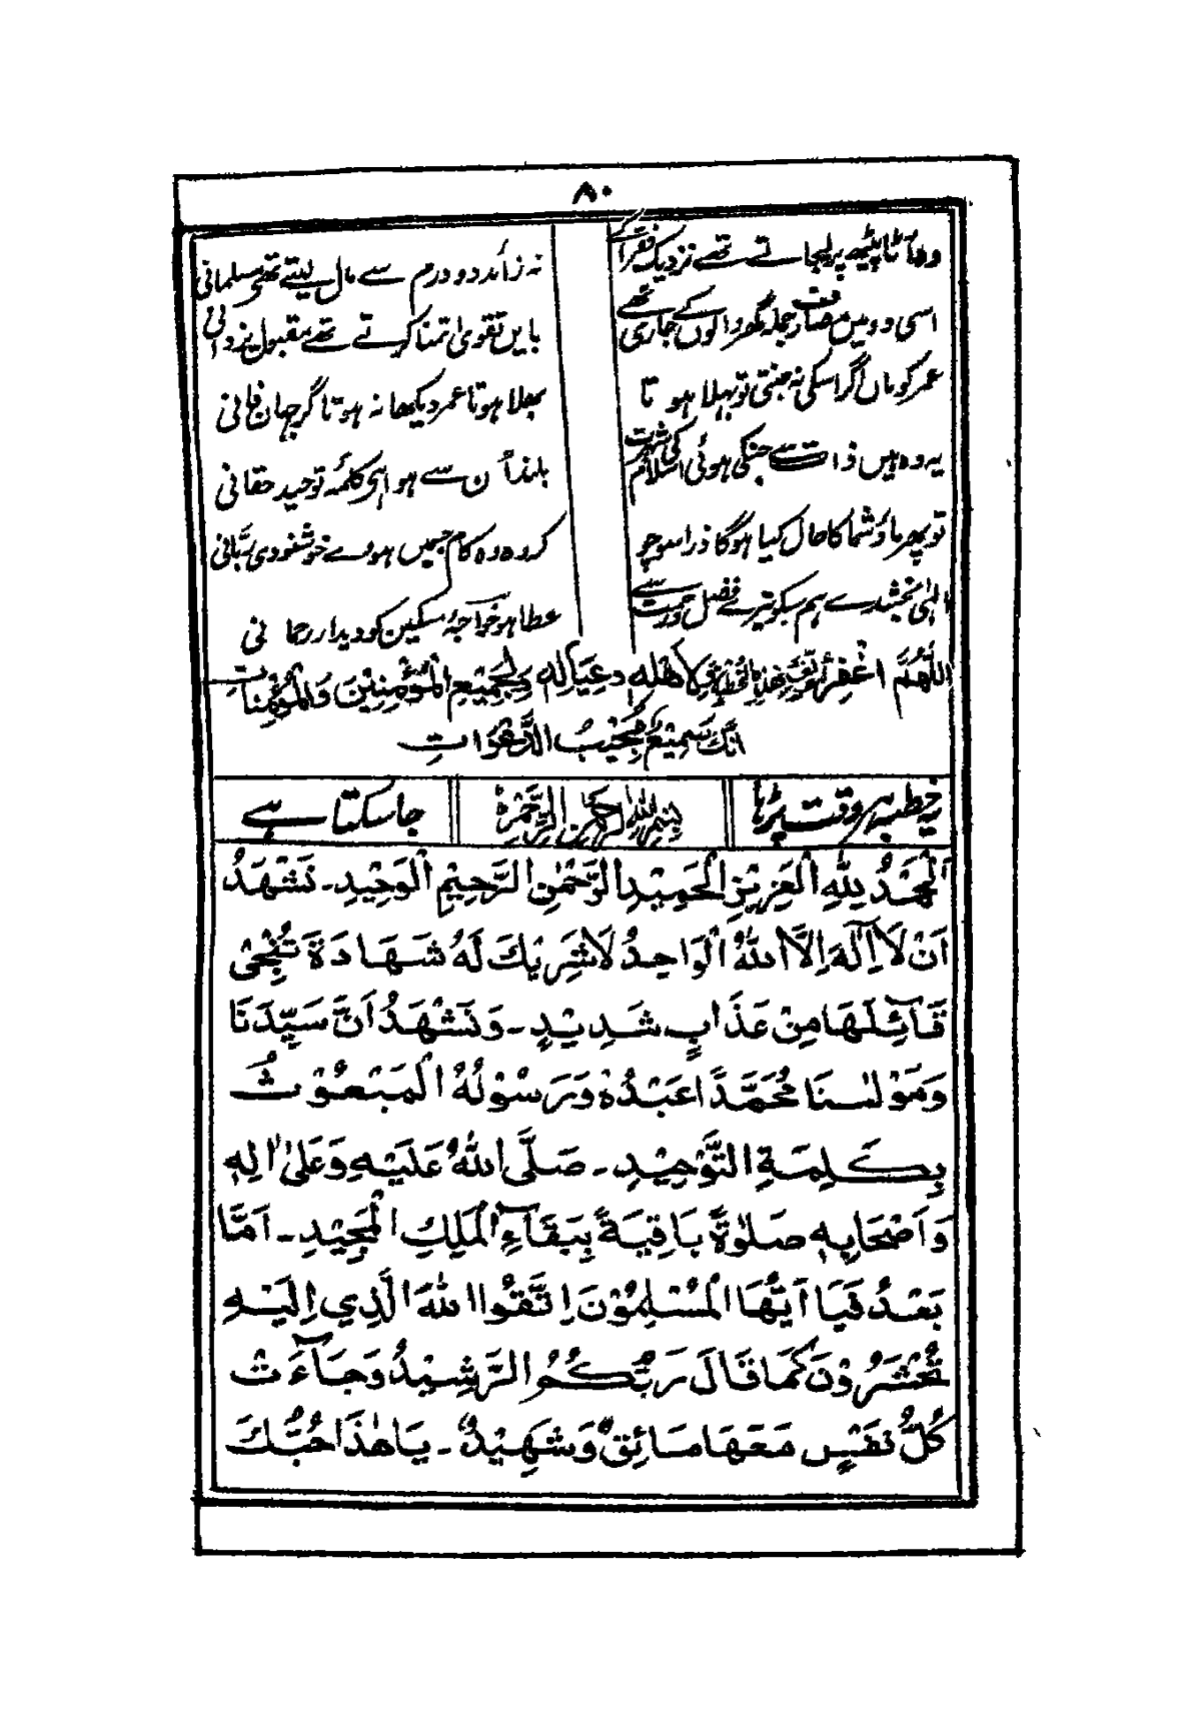 ۸۰
وہ آٹا پیٹھ پر لیجاتے تھے نزدیک فقرا کے
نہ زائد دو درم سے مال لیتے تھے مسلمانی
اسی دو میں مصارف جملہ گھر والوں کے جاری تھے
بایں تقویٰ تمنا کرتے تھے مقبول یزدانی
عمر کو ماں اگر اسکی نہ جنتی تو بہلا ہوتا
بھلا ہوتا عمر دیکھا نہ ہوتا گر جہان فانی
یہ وہ ہیں ذات سے جنکی ہوئی اسلام کی شہرت
بلند اُن سے ہوا ہی کلمۂ توحید حقانی
تو پھر ماؤ شما کا حال کیا ہوگا ذرا سوچو
کرو وہ کام جسمیں ہووے خوشنودی ربّانی
الہٰی بخشدے ہم سبکو تیرے فضل و رحمت سے
عطا ہو خواجۂ مسکین کو دیدار رحمانی
اَللّٰهُمَّ اغْفِرْ لِمُؤَلِّفِ هٰذِهِ الْخُطْبَةِ وَلِاَهْلِهٖ وَعِيَالِهٖ وَلِجَمِيْعِ الْمُؤْمِنِيْنَ وَالْمُؤْمِنَاتِ
اِنَّكَ سَمِيْعٌ مُّجِيْبُ الدَّعَوَاتِ
خطبہ ہر وقت پڑہا بِسْمِ اللّٰهِ الرَّحْمٰنِ الرَّحِيْمِ جا سکتا ہے
اَلْحَمْدُ لِلّٰهِ الْعَزِيْزِ الْحَمِيْدِ الرَّحْمٰنِ الرَّحِيْمِ الْوَحِيْدِ ۔ نَشْهَدُ
اَنْ لَا اِلٰهَ اِلَّا اللّٰهُ الْوَاحِدُ لَا شَرِيْكَ لَهٗ شَهَادَةً تُنْجِىْ
قَآئِلَهَا مِنْ عَذَابٍ شَدِيْدٍ ۔ وَنَشْهَدُ اَنَّ سَيِّدَنَا
وَمَوْلٰنَا مُحَمَّدًا عَبْدُهٗ وَرَسُوْلُهُ الْمَبْعُوْثُ
بِكَلِمَةِ التَّوْحِيْدِ ۔ صَلَّى اللّٰهُ عَلَيْهِ وَعَلٰى اٰلِهٖ
وَاَصْحَابِهٖ صَلٰوةً بَاقِيَةً بِبَقَآءِ الْمَلِكِ الْمَجِيْدِ ۔ اَمَّا
بَعْدُ فَيَا اَيُّهَا الْمُسْلِمُوْنَ اِتَّقُوا اللّٰهَ الَّذِي اِلَيْهِ
تُحْشَرُوْنَ كَمَا قَالَ رَبُّكُمُ الرَّشِيْدُ وَجَآءَتْ
كُلُّ نَفْسٍ مَعَهَا سَائِقٌ وَشَهِيْدٌ ۔ يَا هٰذَا حُبُّكَ